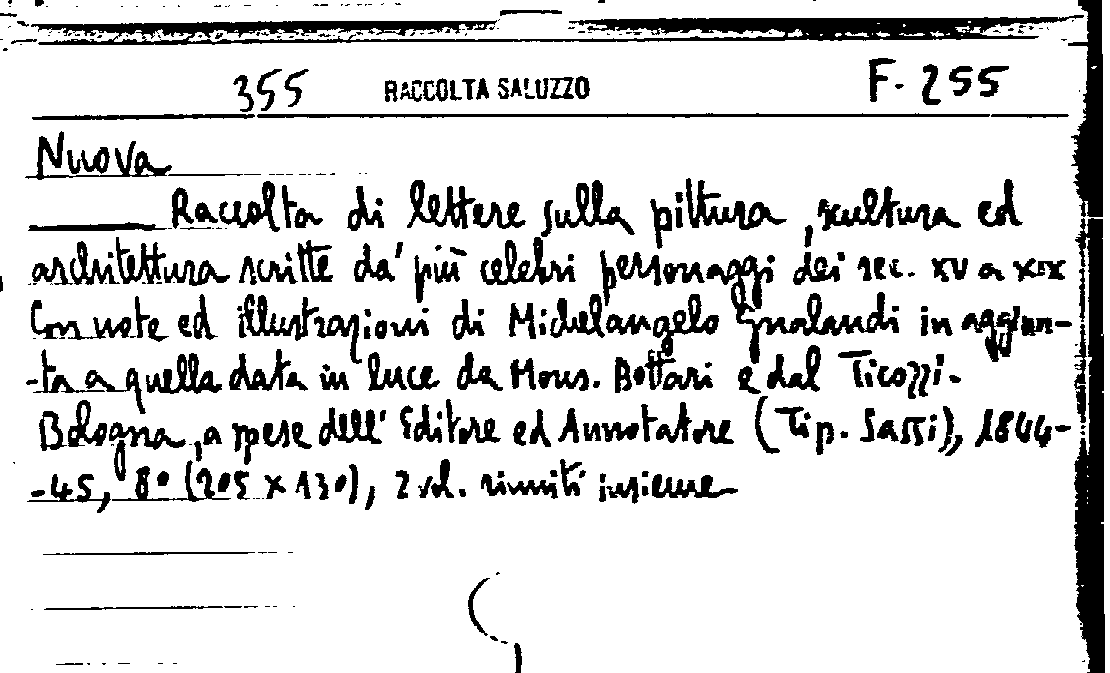 355 RACCOLTA SALUZZO F. 255
Nuova
Raccolta di lettere sulla pittura, scultura ed
architettura scritte da' più celebri personaggi dei sec. XV a XIX
Con note ed illustrazioni di Michelangelo Gualandi in aggiun-
-ta a quella data in luce da Mons. Bottari e dal Ticozzi.
Bologna, a spese dell' Editore ed Annotatore (Tip. Sassi), 1844-
-45, 8° (205 x 130), 2 vol. riuniti insieme